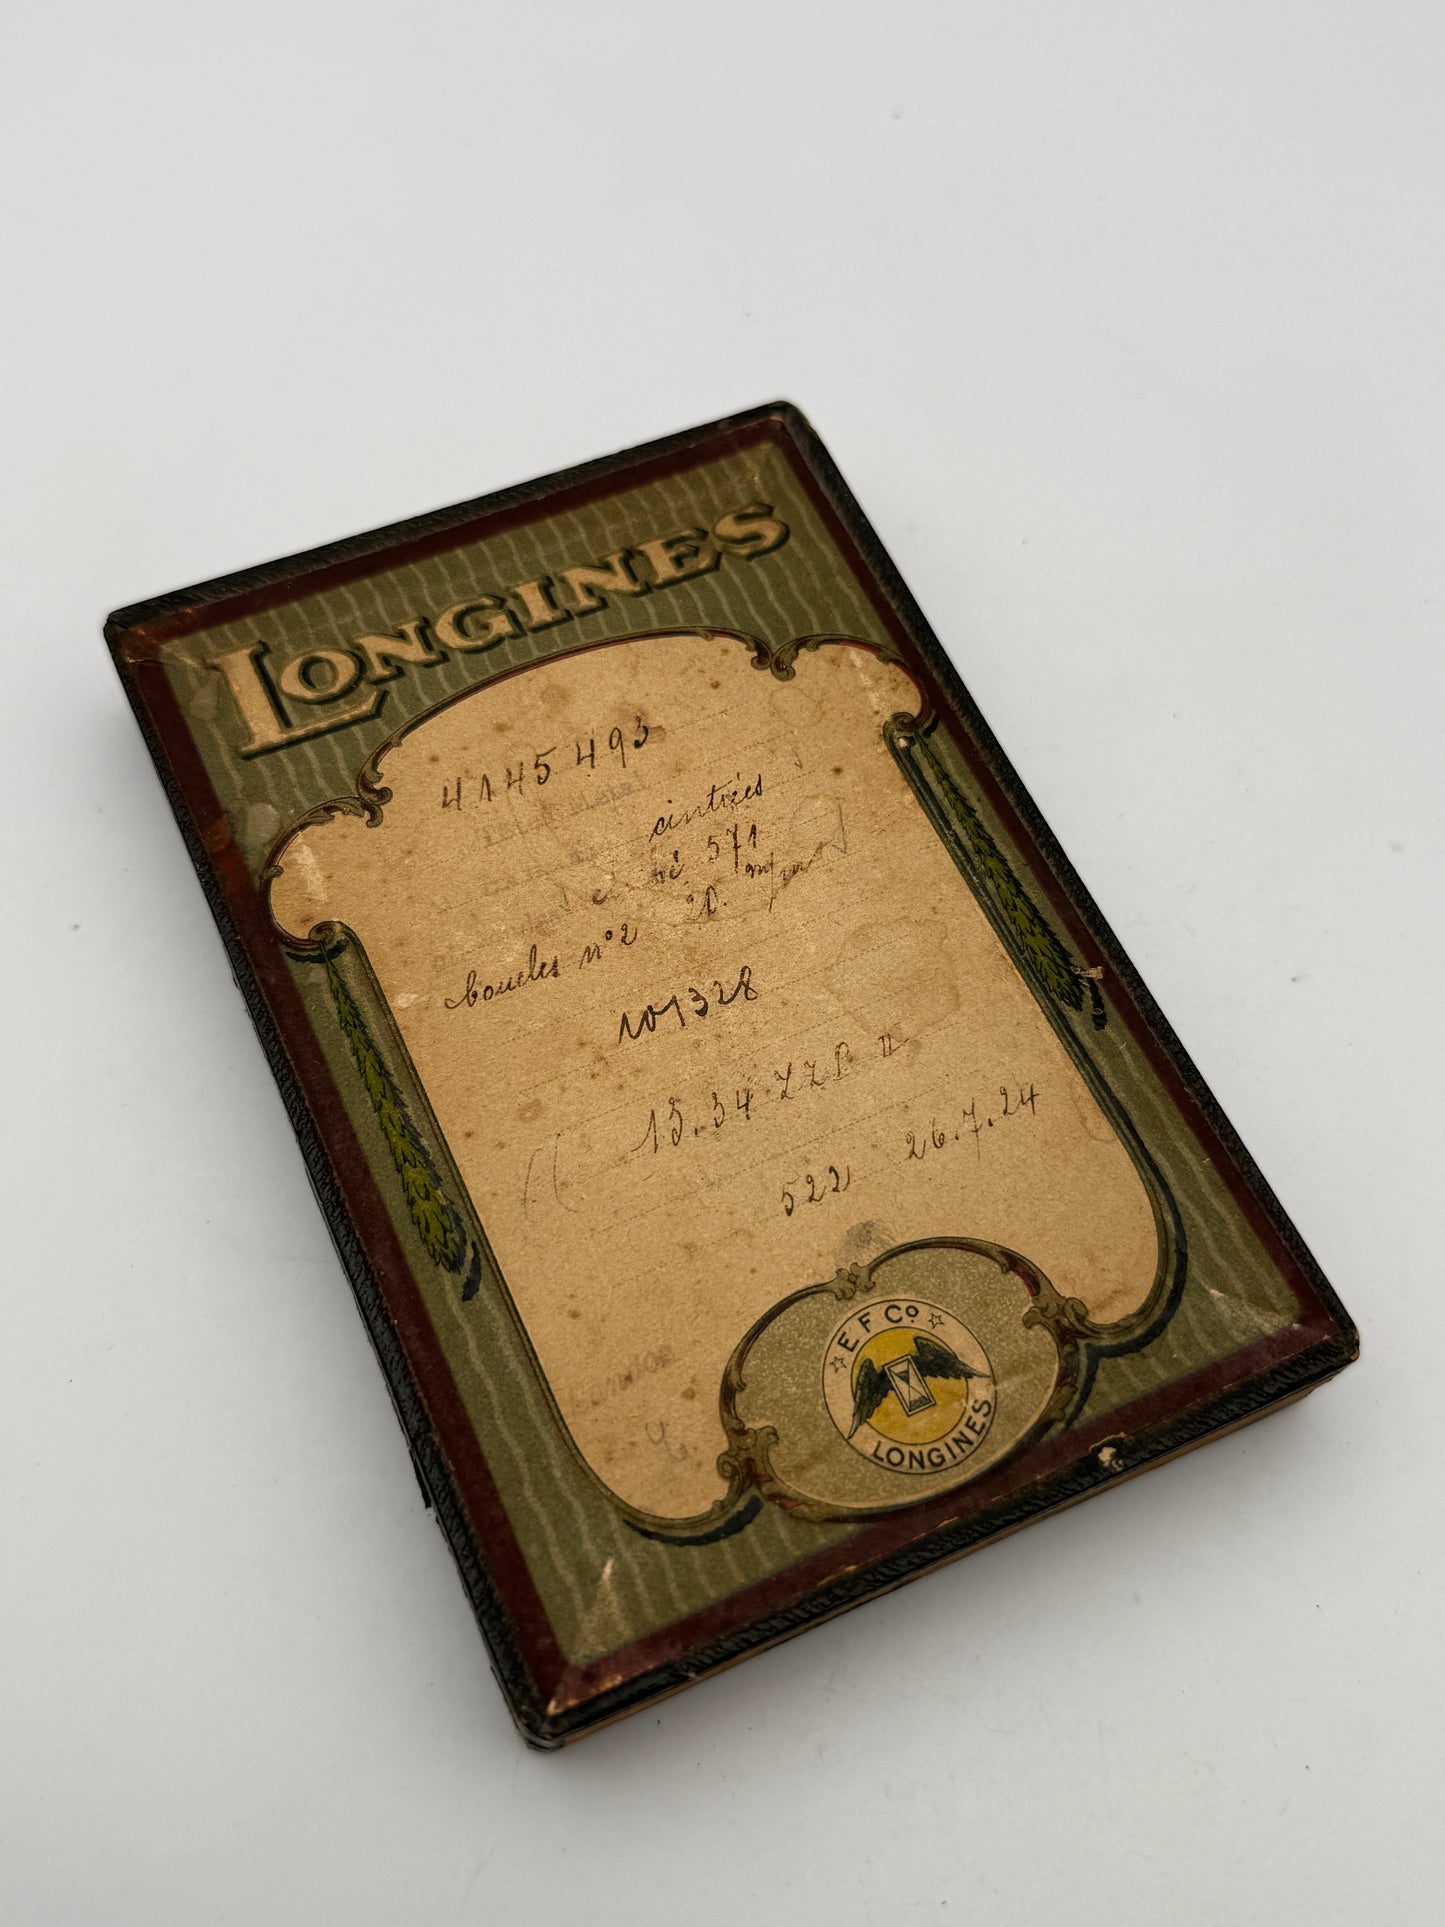 LONGINES
4145493
cintrées
571
boucles n° 2 20 m/m
101328
15.34 ZZP
522 26.7.24
E F Co
LONGINES